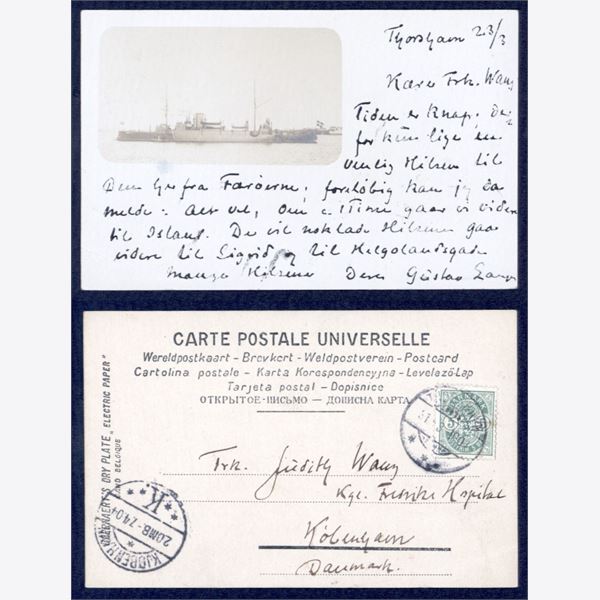 Thorshavn 23/3
Kære Frk. Wang
Tiden er Knap, der-
for kun lige en
venlig Hilsen til
Dem her fra Færöerne; foreløbig kan jeg da
melde: alt vel, om 1 Time gaar vi videre
til Island. De vil nok lade Hilsenen gaa
videre til Sigrid og til Helgolandsgade
Mange Hilsener Deres Gustav
CARTE POSTALE UNIVERSELLE
Wereldpostkaart – Brevkort – Weldpostverein – Postcard
Cartolina postale – Karta Korespondencyjna – Levelező-Lap
Tarjeta postal – Dopisnice
ОТКРЫТОЕ ПИСЬМО — ДОПИСНА КАРТА
DRY PLATE „ELECTRIC PAPER"
BELGIQUE
Frk. Judith Wang
Kgl. Fredriks Hospital
København
Danmark.
K.
20MB - 7.4.04
KJØBENH